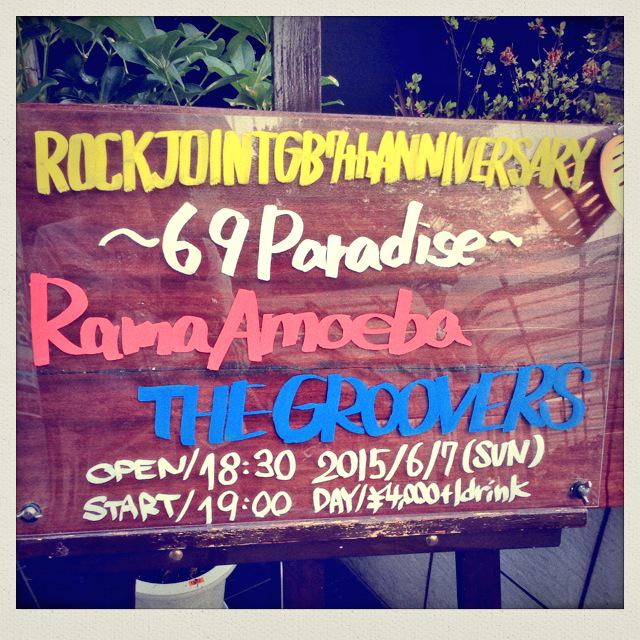 ROCKJOINTGB7thANNIVERSARY
~69Paradise~
Rama Amoeba
THE GROOVERS
OPEN/18:30 2015/6/7(SUN)
START/19:00 DAY/¥4,000+1drink